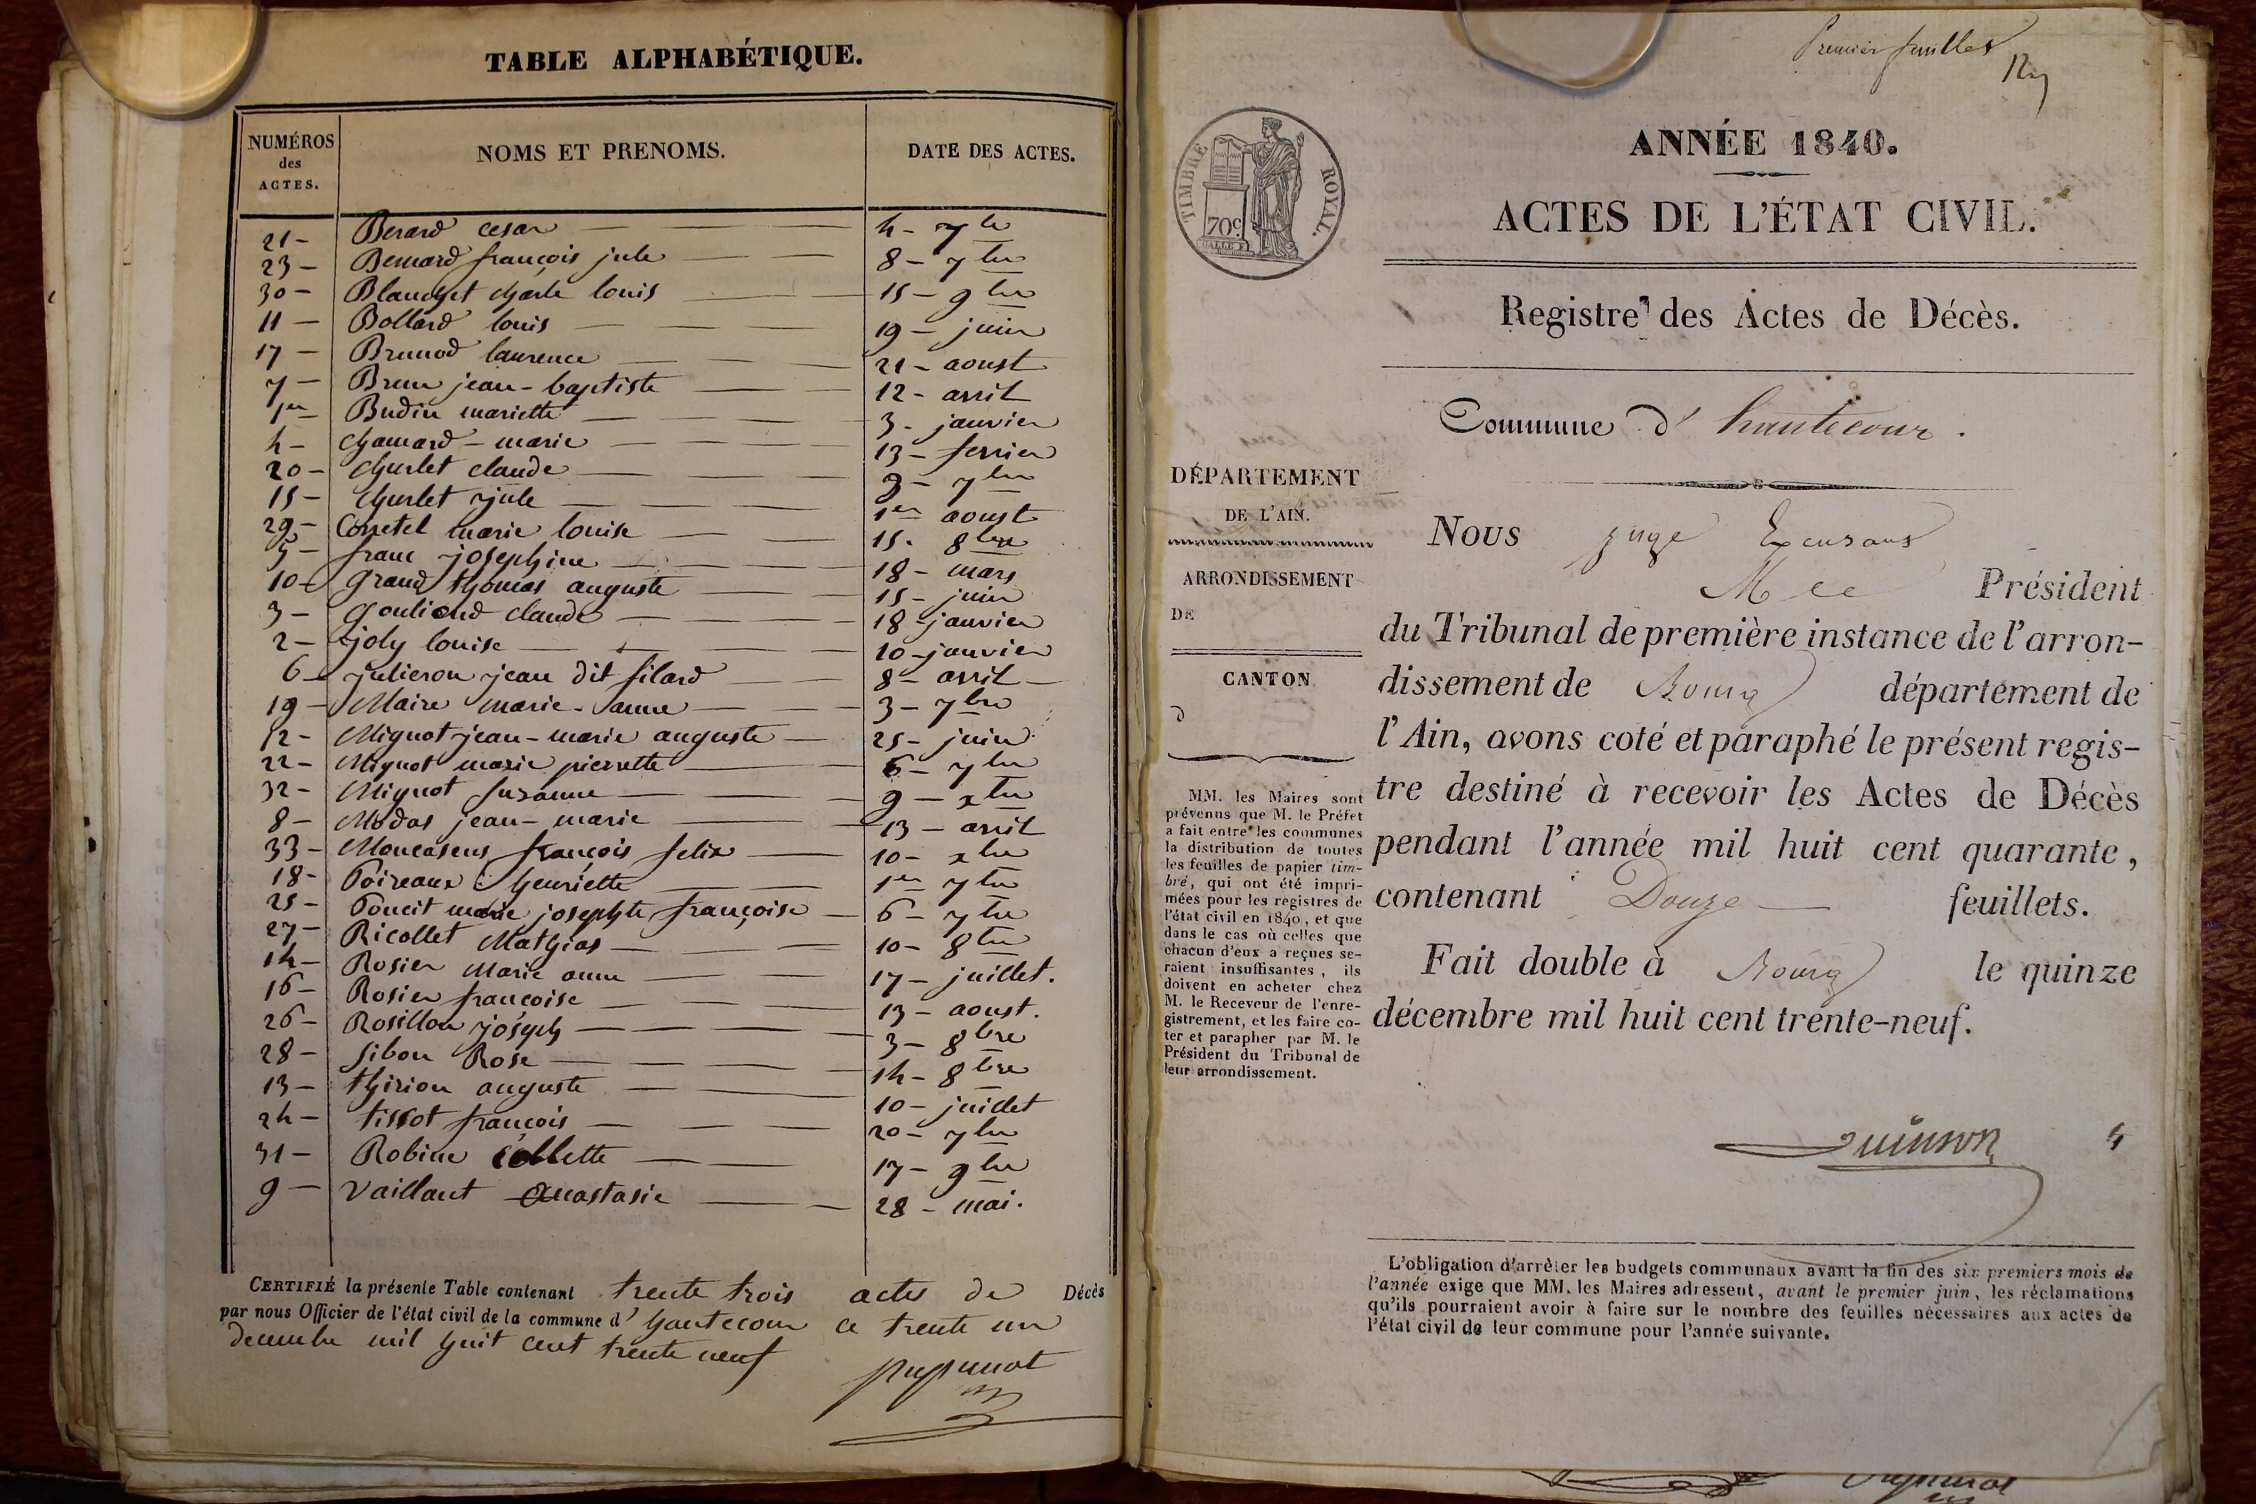 TABLE ALPHABÉTIQUE.
NUMÉROS
des
ACTES.
NOMS ET PRENOMS.
DATE DES ACTES.
21 - Berard cesar - 4 - 7bre
23 - Bernard françois jule - 8 - 7bre
30 - Blanchet charle louis - 15 - 9bre
11 - Bollard louis - 19 - juin
17 - Brunod laurence - 21 - aoust
7 - Brun jean-baptiste - 12 - avril
1er - Budin mariette - 3 - janvier
4 - chanard - marie - 13 - fevrier
20 - churlet claude - 3 - 7bre
15 - churlet jule - 1er aoust
29 - Corretel marie louise - 15 - 8bre
5 - franc josephine - 18 - mars
10 - grand thomas auguste - 15 - juin
3 - gouliond claude - 18 - janvier
2 - joly louise - 10 - janvier
6 - julieron jean dit filard - 8 - avril
19 - Maire marie-anne - 3 - 7bre
12 - Mignot jean-marie auguste - 25 - juin
22 - Mignot marie pierrette - 6 - 7bre
32 - Mignot Suzanne - 9 - xbre
8 - Modas jean-marie - 13 - avril
33 - françois felix - 10 - xbre
18 - Poireaux henriette - 1er 7bre
25 - Poncit marie josephte françoise - 6 - 7bre
27 - Ricollet Mathias - 10 - 8bre
14 - Rosier Marie anne - 17 - juillet.
16 - Rosier françoise - 13 - aoust.
26 - Rosillon joseph - 3 - 8bre
28 - Sibon Rose - 14 - 8bre
13 - thirion auguste - 10 - juillet
24 - tissot françois - 20 - 7bre
31 - Robine Collette - 17 - 9bre
9 - Vaillant anastasie - 28 - mai.
CERTIFIÉ la présente Table contenant trente trois actes de Décès
par nous Officier de l'état civil de la commune d' hautecour ce trente un
decembre mil huit cent trente neuf
Premier feuillet
ANNÉE 1840.
TIMBRE ROYAL.
70c.
ACTES DE L'ÉTAT CIVIL.
Registre des Actes de Décès.
Commune d' hautecour.
DÉPARTEMENT
DE L'AIN.
ARRONDISSEMENT
DE
CANTON
d
MM. les Maires sont
prévenus que M. le Préfet
a fait entre les communes
la distribution de toutes
les feuilles de papier tim-
bré, qui ont été impri-
mées pour les registres de
l'état civil en 1840, et que
dans le cas où celles que
chacun d'eux a reçues se-
raient insuffisantes, ils
doivent en acheter chez
M. le Receveur de l'enre-
gistrement, et les faire co-
ter et parapher par M. le
Président du Tribunal de
leur arrondissement.
Nous juge
Président
du Tribunal de première instance de l'arron-
dissement de Bourg département de
l'Ain, avons coté et paraphé le présent regis-
tre destiné à recevoir les Actes de Décès
pendant l'année mil huit cent quarante,
contenant Douze feuillets.
Fait double à Bourg le quinze
décembre mil huit cent trente-neuf.
Quinson
L'obligation d'arrêter les budgets communaux avant la fin des six premiers mois de
l'année exige que MM. les Maires adressent, avant le premier juin, les réclamations
qu'ils pourraient avoir à faire sur le nombre des feuilles nécessaires aux actes de
l'état civil de leur commune pour l'année suivante.